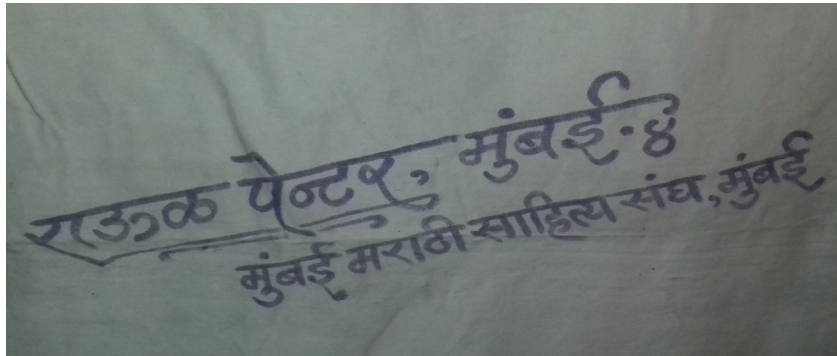 राऊळ पेन्टर, मुंबई-४
मुंबई मराठी साहित्य संघ, मुंबई